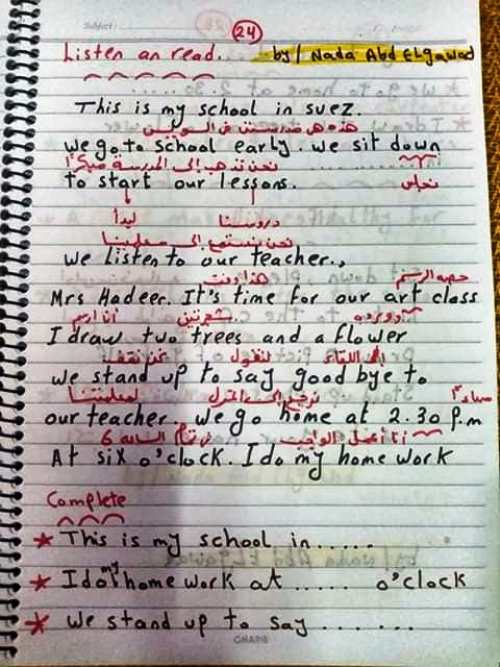 24
Listen an read. by/ Nada Abd Elgawad
This is my school in suez.
هذه هى مدرستى فى السويس
we go to school early. we sit down
نحن نذهب إلى المدرسة مبكراً
to start our lessons. نجلس
لنبدأ دروسنا
نحن نستمع إلى معلمتنا
we listen to our teacher.,
هذا وقت حصه الرسم
Mrs Hadeer. It's time for our art class
أنا ارسم شجرتين و ورده
I draw two trees and a flower
نحن نقف لنقول إلى اللقاء
we stand up to say good bye to
لمعلمتنا نرجع إلى المنزل مساءاً
our teacher. we go home at 2.30 p.m
فى تمام الساعه 6 أنا أعمل الواجب
At six o'clock. I do my home work
Complete
* This is my school in .....
* I do my home work at ..... o'clock
* we stand up to say .......